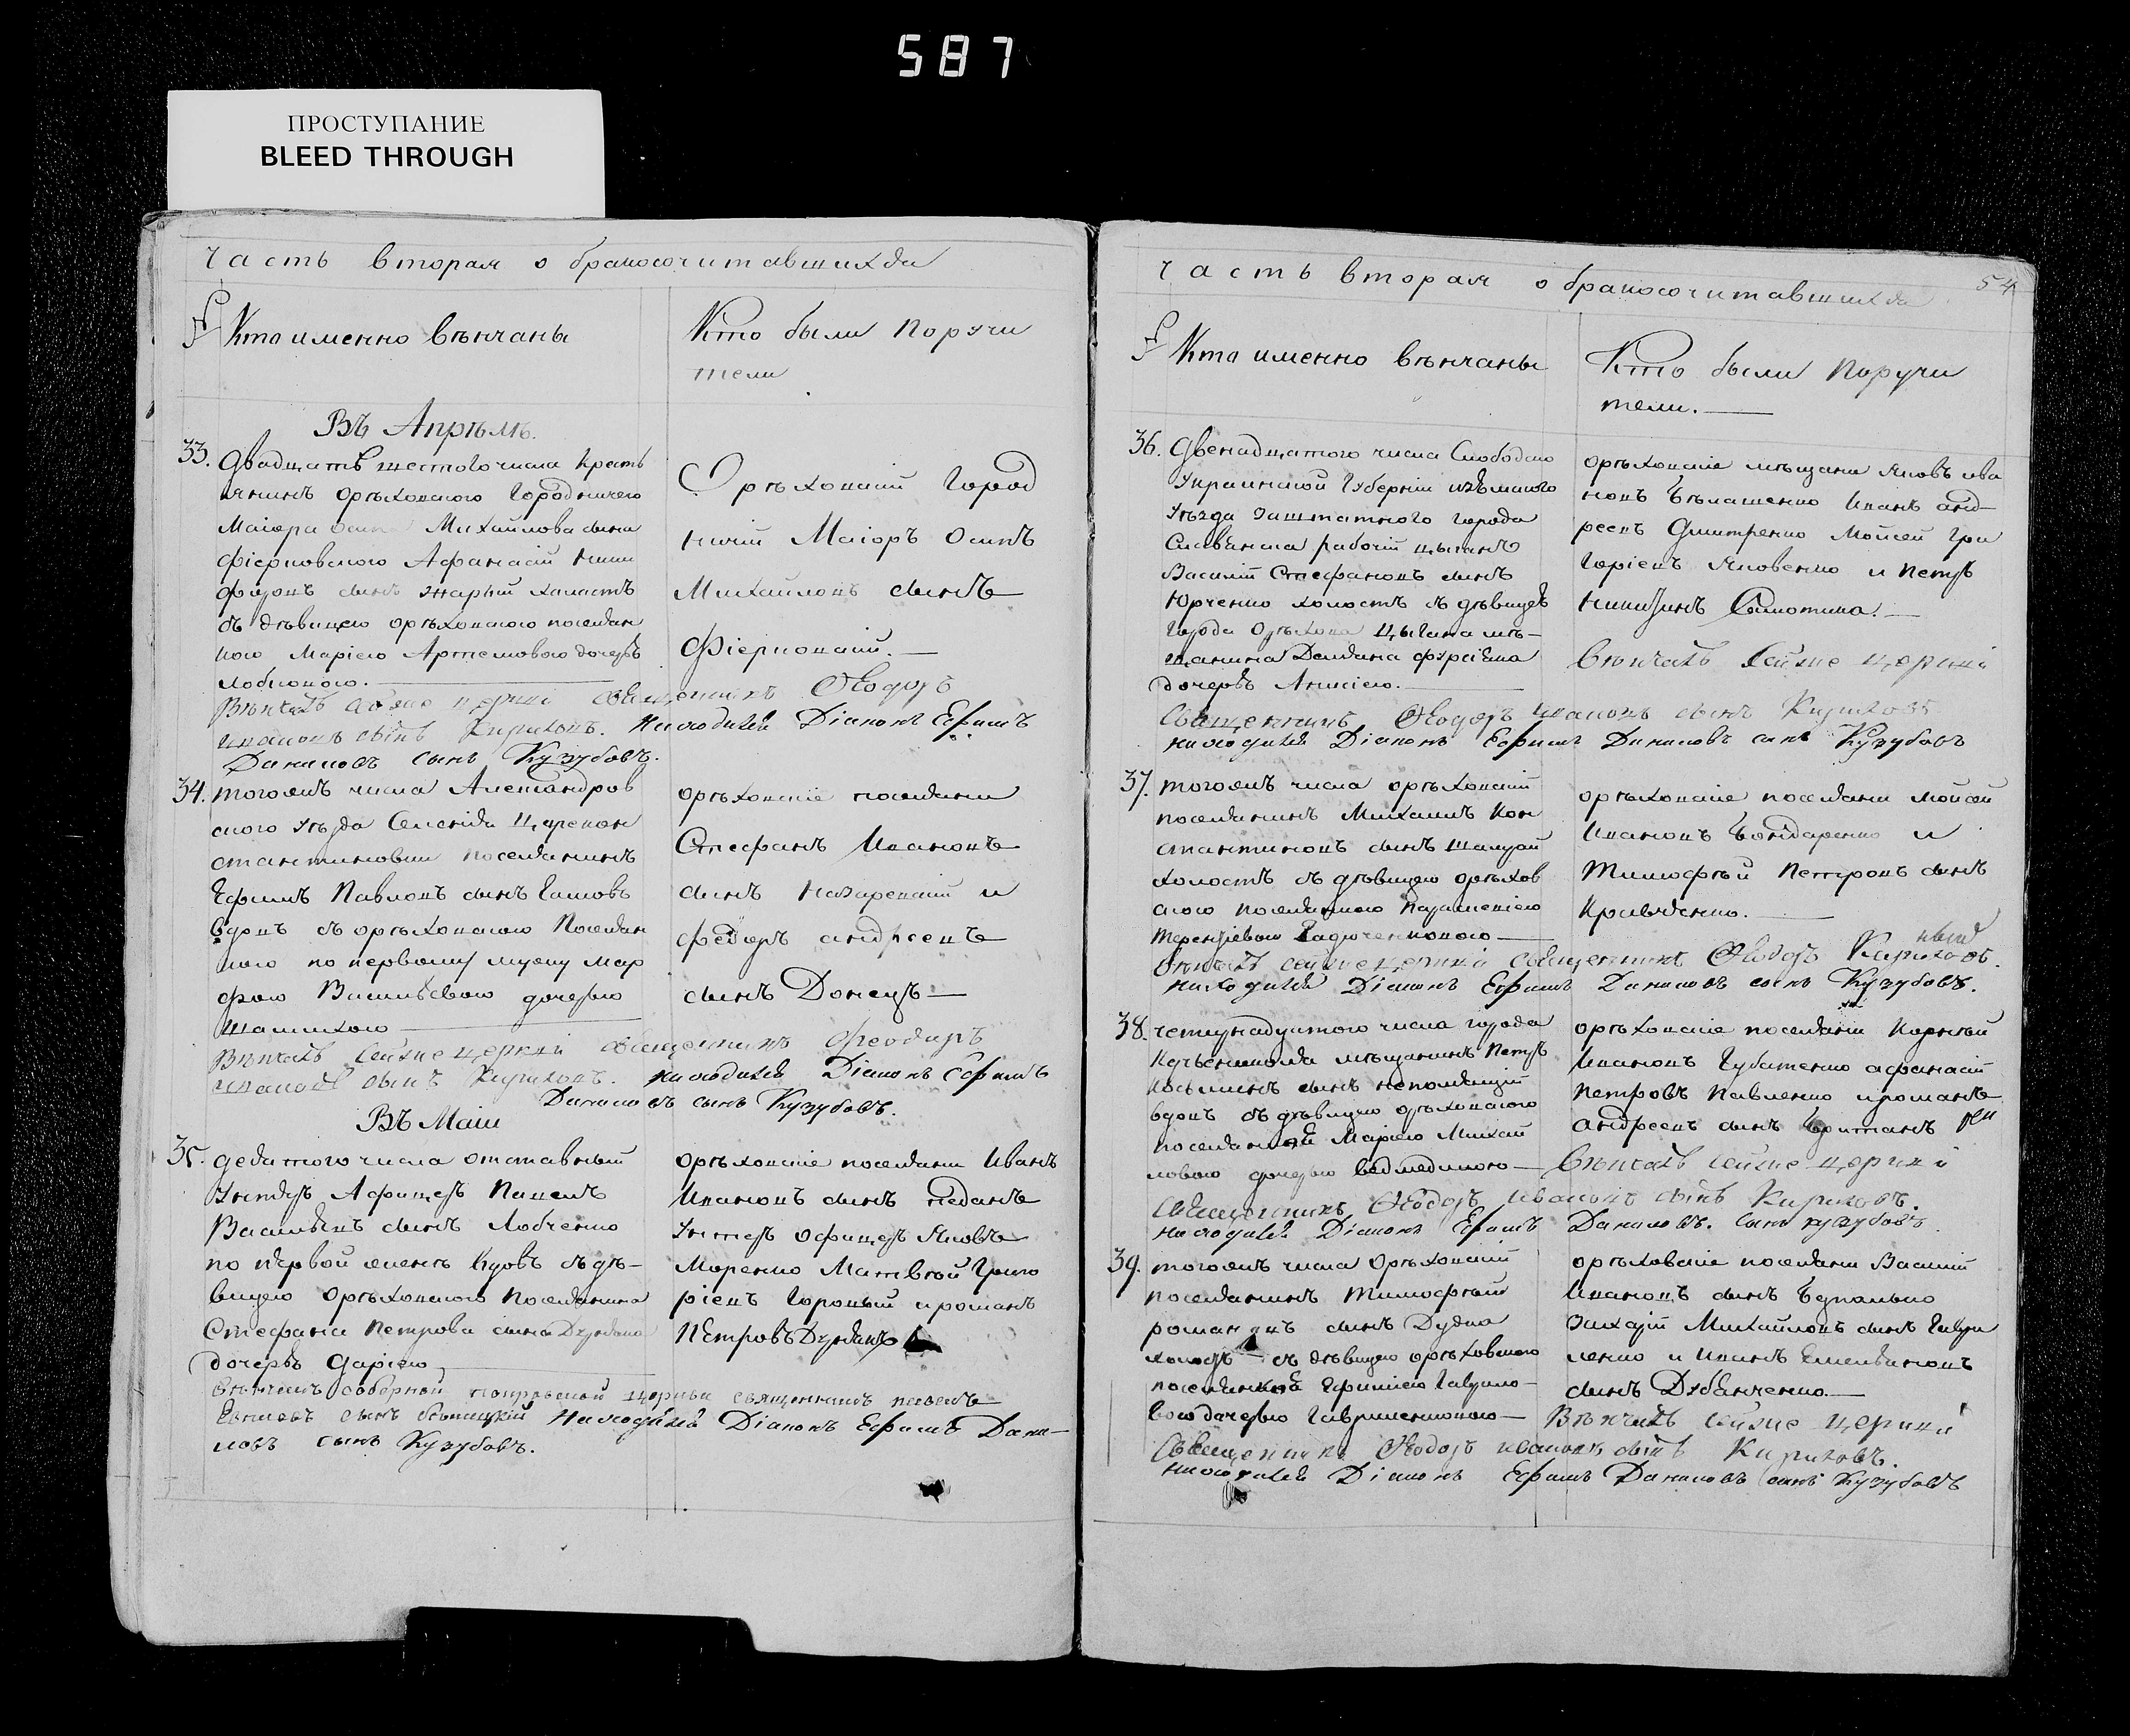 587
ПРОСТУПАНИЕ
BLEED THROUGH
Часть вторая о бракосочитавшихся
Кто именно вѣнчаны
Кто были поручи
тели
Въ Апрѣлѣ.
33. Двадцать шестого числа кресть
янинъ орѣховского Городничего
Маіора Осипа Михайлова сына
Фіерковского Афанасій Ники
форовъ сынъ холостъ
съ дѣвицею орѣховского поселян
кою Маріею Артемовою дочерью
Орѣховскій Город
ничій Маіоръ Осипъ
Михайловъ сынъ
Фіерковскій.
Вѣнчалъ сейже церкви священникъ Ѳеодоръ
Ивановъ сынъ Кириховъ. Находился Діаконъ Ефимъ
Даниловъ сынъ Кузубовъ.
34. тогожъ числа Александров
ского уѣзда Селенія Царекон
стантиновки поселянинъ
Ефимъ Павловъ сынъ
вдовъ съ орѣховскою Поселян
кою по первому мужу Мар
фою Васильевою дочерью
орѣховскіе поселяни
Стефанъ Ивановъ
сынъ Назаренскій и
Федоръ Андреевъ
сынъ Донецъ
Вѣнчалъ сейже церкви священникъ Феодоръ
Ивановъ сынъ Кириховъ. находился Діаконъ Ефимъ
Даниловъ сынъ Кузубовъ.
Въ Маіи
35. девятого числа отставный
Унтеръ Афицеръ Павелъ
Васильевъ сынъ Лобченко
по первой женѣ вдовъ съ дѣ-
вицею Орѣховского поселянина
Стефана Петрова сына
дочерью Даріею
орѣховскіе поселяни Иванъ
Ивановъ сынъ
Унтеръ офицеръ Яковъ
Моренко Матвѣй Григо
ріевъ Горовый и романъ
Петровъ
Вѣнчалъ соборной покровской церкви священникъ павелъ
сынъ Находился Діаконъ Ефимъ Дани-
ловъ сынъ Кузубовъ.
Часть вторая о бракосочитавшихся
54
Кто именно вѣнчаны
Кто были поручи
тели.
36. Двенадцатого числа Слободско
Украинской Губерніи изъюмского
Уѣзда заштатного города
Славянска рабочій цыганъ
Василій Стефановъ сынъ
Юрченко холостъ съ дѣвицею
Города Орѣхова Цыгана мѣ-
щанина
дочерью
орѣховскіе мѣщани Яковъ ива
новъ Бѣлашенко Иванъ анд-
реевъ Дмитренко Мойсей Гри
горіевъ Яковенко и Петръ
Вѣнчалъ сейже церкви
священникъ Ѳеодоръ Ивановъ сынъ Кириховъ
находился Діаконъ Ефимъ Даниловъ сынъ Кузубовъ
37. тогожъ числа орѣховскій
поселянинъ Михаилъ Кон
стантиновъ сынъ
холостъ съ дѣвицею орѣхов
скою поселянкою
орѣховскіе поселяни мойсей
Ивановъ Бондаренко и
Тимофѣй Петровъ сынъ
Кравченко.
Вѣнчалъ сейже церкви священникъ Ѳеодоръ Кириховъ.
находился Діаконъ Ефимъ Даниловъ сынъ Кузубовъ.
38. четырнадцатого числа города
мѣщанинъ Петръ
сынъ
вдовъ съ дѣвицею орѣховскою
поселянкой Маріею Михай
ловою дочерью
орѣховскіе поселяни Корнѣй
Ивановъ Губатенко афанасій
Петровъ Павленко и романъ
андреевъ сынъ
Вѣнчалъ сейже церкви
священникъ Ѳеодоръ Ивановъ сынъ Кириховъ.
находился Діаконъ Ефимъ Даниловъ. сынъ кузубовъ.
39. тогожъ числа Орѣховскій
поселянинъ Тимофѣй
романовъ сынъ Дудка
холостъ съ дѣвицею орѣховскою
поселянкой
вою дочерью Гавриленковою
орѣховскіе поселяни Василій
Ивановъ сынъ
Михайловъ сынъ
и Иванъ Емельяновъ
сынъ Дубанченко.
Вѣнчалъ сейже церкви
священникъ Ѳеодоръ ивановъ сынъ Кириховъ.
находился Діаконъ Ефимъ Даниловъ сынъ Кузубовъ